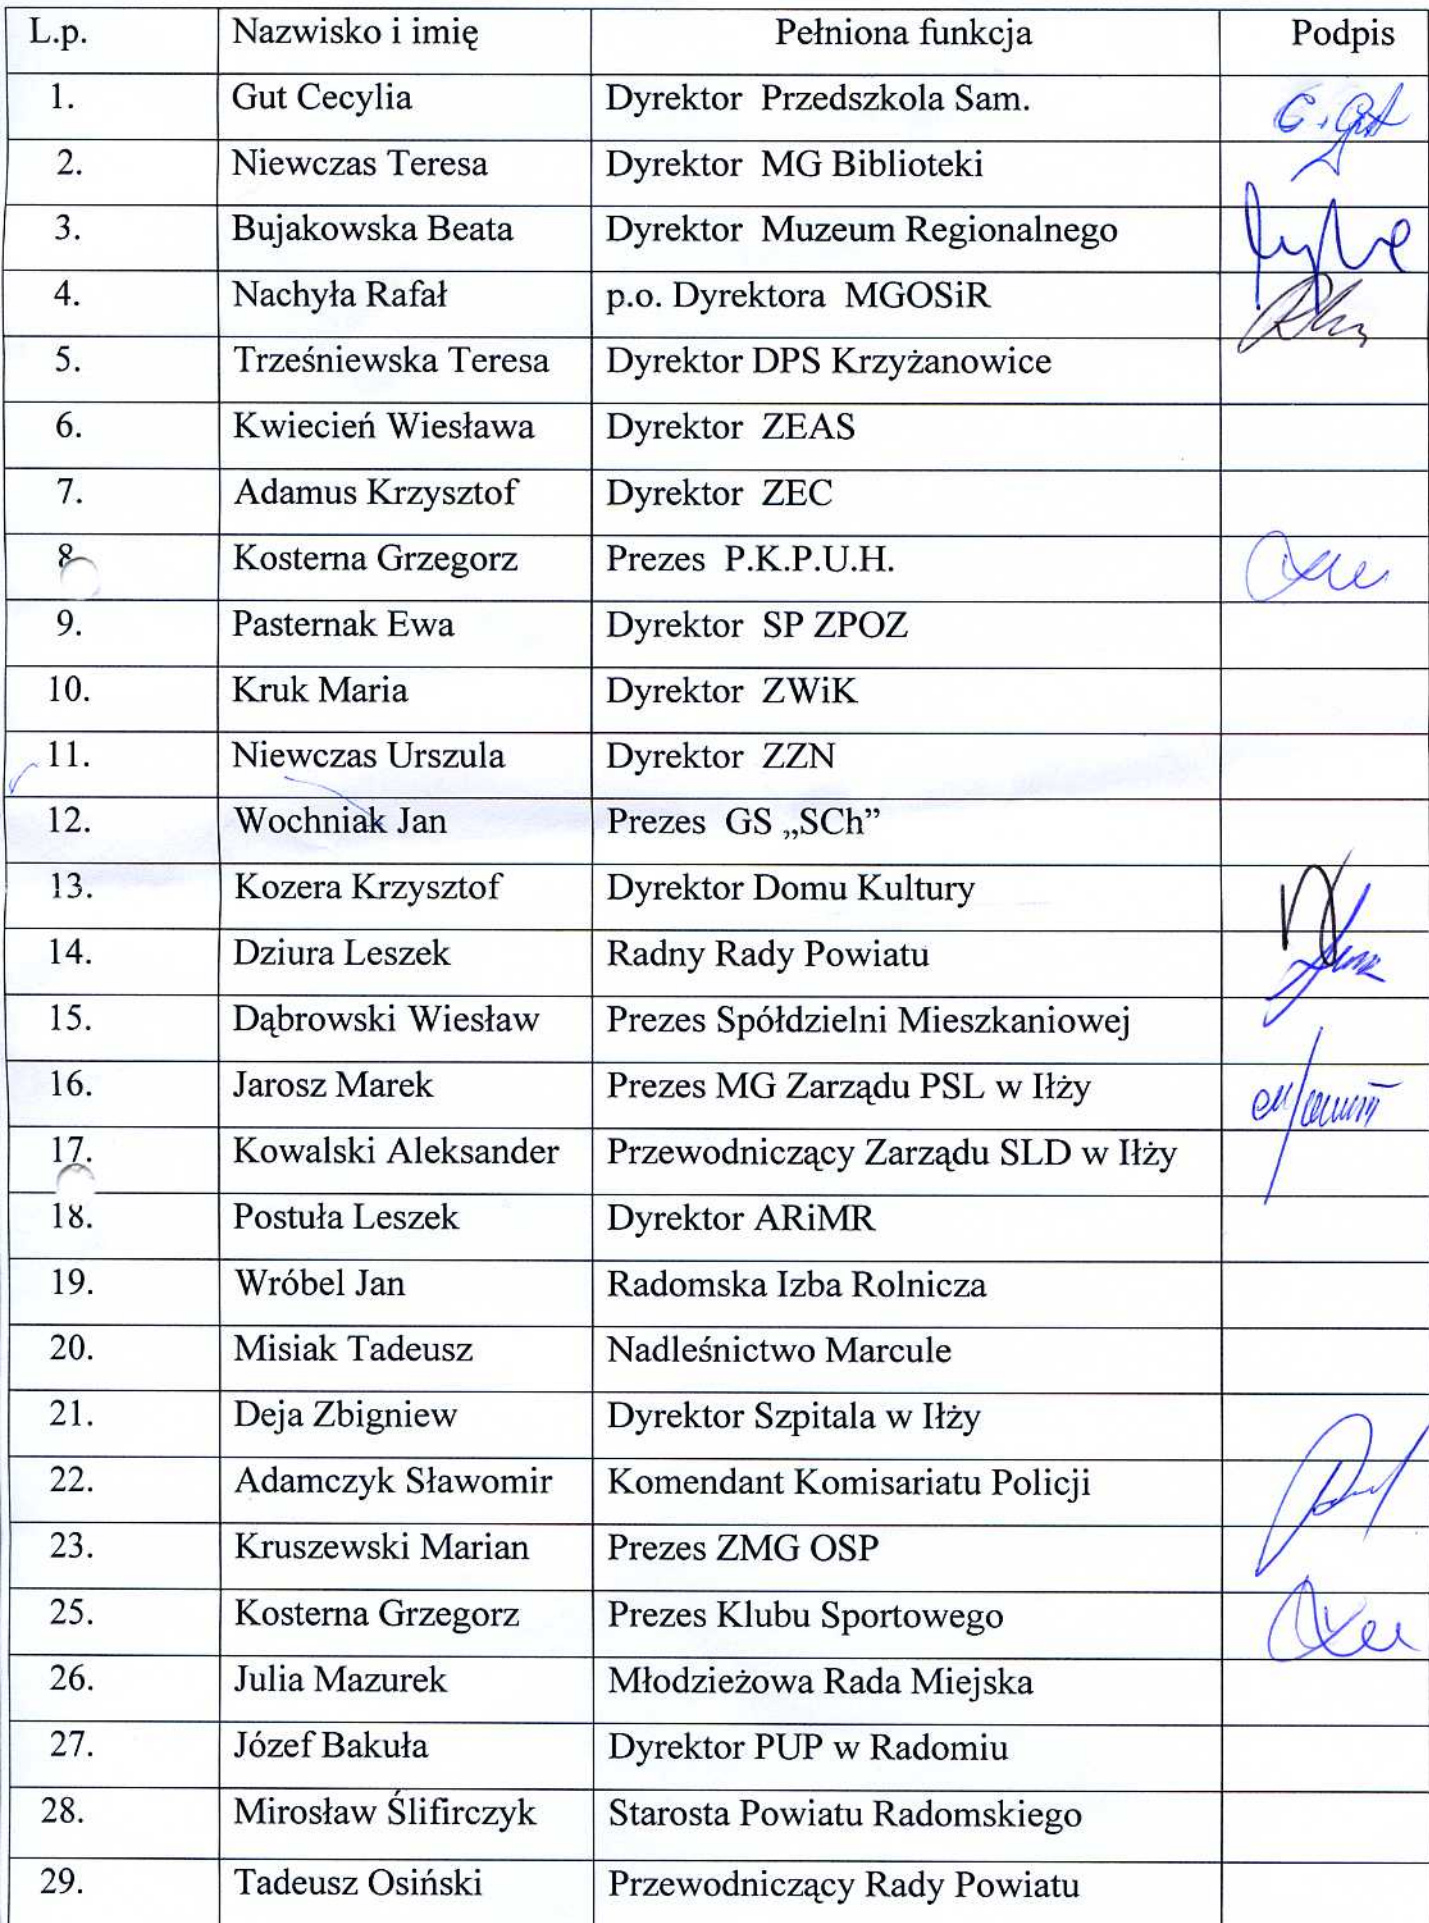 L.p. Nazwisko i imię Pełniona funkcja Podpis
1. Gut Cecylia Dyrektor Przedszkola Sam. C. Gut
2. Niewczas Teresa Dyrektor MG Biblioteki
3. Bujakowska Beata Dyrektor Muzeum Regionalnego
4. Nachyła Rafał p.o. Dyrektora MGOSiR
5. Trześniewska Teresa Dyrektor DPS Krzyżanowice
6. Kwiecień Wiesława Dyrektor ZEAS
7. Adamus Krzysztof Dyrektor ZEC
8. Kosterna Grzegorz Prezes P.K.P.U.H.
9. Pasternak Ewa Dyrektor SP ZPOZ
10. Kruk Maria Dyrektor ZWiK
11. Niewczas Urszula Dyrektor ZZN
12. Wochniak Jan Prezes GS „SCh”
13. Kozera Krzysztof Dyrektor Domu Kultury
14. Dziura Leszek Radny Rady Powiatu
15. Dąbrowski Wiesław Prezes Spółdzielni Mieszkaniowej
16. Jarosz Marek Prezes MG Zarządu PSL w Iłży
17. Kowalski Aleksander Przewodniczący Zarządu SLD w Iłży
18. Postuła Leszek Dyrektor ARiMR
19. Wróbel Jan Radomska Izba Rolnicza
20. Misiak Tadeusz Nadleśnictwo Marcule
21. Deja Zbigniew Dyrektor Szpitala w Iłży
22. Adamczyk Sławomir Komendant Komisariatu Policji
23. Kruszewski Marian Prezes ZMG OSP
25. Kosterna Grzegorz Prezes Klubu Sportowego
26. Julia Mazurek Młodzieżowa Rada Miejska
27. Józef Bakuła Dyrektor PUP w Radomiu
28. Mirosław Ślifirczyk Starosta Powiatu Radomskiego
29. Tadeusz Osiński Przewodniczący Rady Powiatu